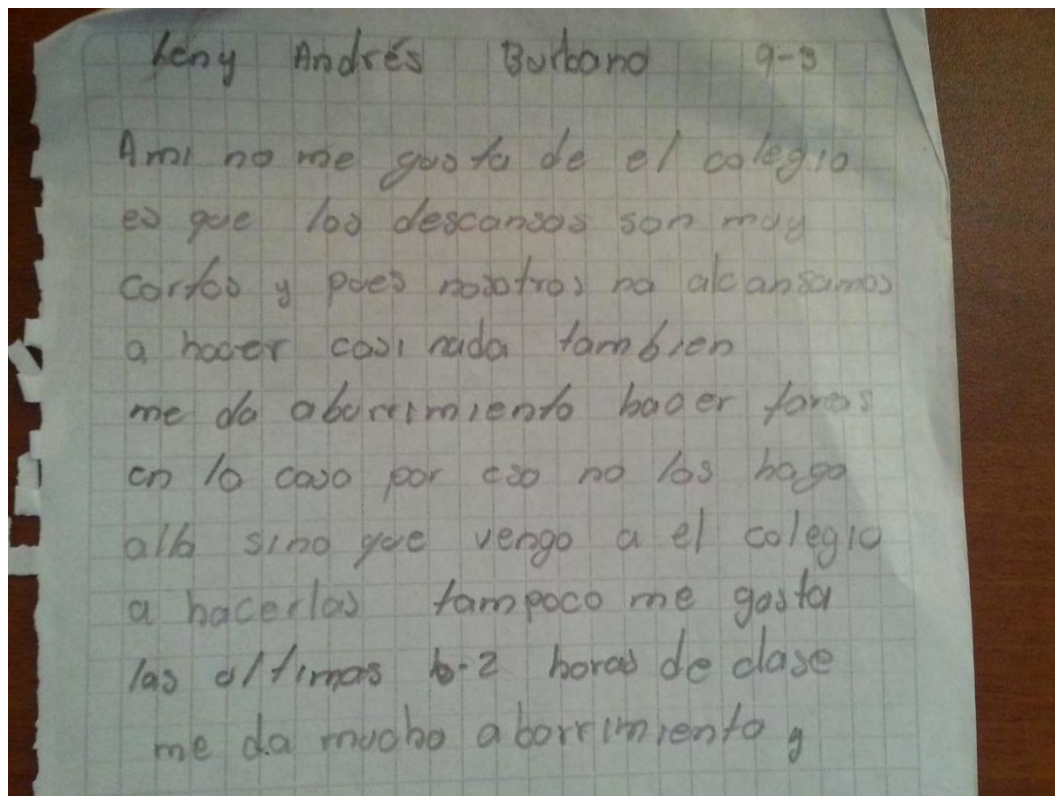 Leny Andrés Burbano 9-3
Ami no me gusta de el colegio
es que los descansos son muy
cortos y pues nosotros no alcansamos
a hacer casi nada tambien
me da aburrimiento hacer
en la casa por eso no las hago
alla sino que vengo a el colegio
a hacerlas tampoco me gusta
las ultimas 2 horas de clase
me da mucho aburrimiento y